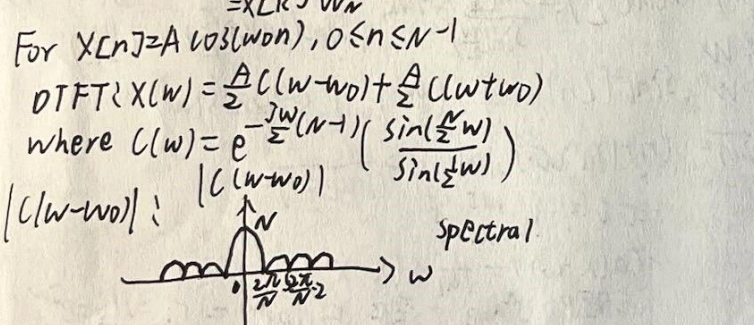 =X[k] W_N
For X[n]=A cos(w0n), 0≤n≤N-1
DTFT: X(w) = A/2 C(w-w0) + A/2 C(w+w0)
where C(w) = e^{-jw/2 (N-1)} ( sin(N/2 w) / sin(1/2 w) )
|C(w-w0)| : |C(w-w0)|
N
spectral
0 2π/N 2π/N·2 w